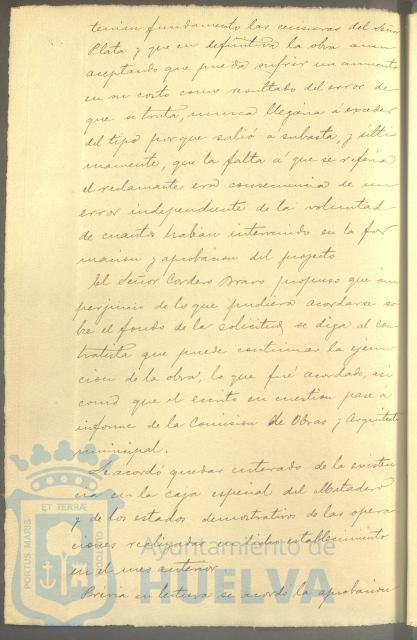 tenian fundamento las censuras del Señor
Plata y que en definitiva la obra aun
aceptando que pueda sufrir un aumento
en su costo como resultado del error de
que se trata, nunca llegaria á exceder
del tipo porque salió á subasta, y ulti
mamente, que la falta á que se referia
el reclamante era consecuencia de un
error independiente de la voluntad
de cuantos habian intervenido en la for
macion y aprobacion del proyecto
El Señor Cordero Bravo propuso que sin
perjuicio de lo que pudiera acordarse so
bre el fondo de la solicitud, se diga al con
tratista que puede continuar la ejecu
cion de la obra, lo que fué acordado, asi
como que el escrito en cuestion pase a
informe de la Comision de Obras y Arquitecto
municipal.
Se acordó quedar enterado de la existen
cia en la caja especial del Matadero
y de los estados demostrativos de las opera
ciones realizadas en dicho establecimiento
en el mes anterior
Previa su lectura se acordó la aprobacion
PORTUS MARIS
ET TERRÆ
CUSTODIA
Ayuntamiento de
HUELVA